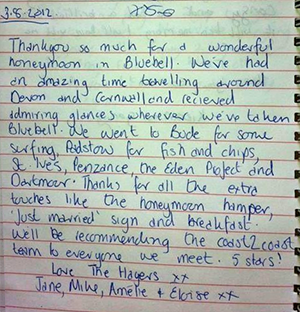 3.8.2012
Thankyou so much for a wonderful
honeymoon in Bluebell. We've had
an amazing time travelling around
Devon and Cornwall and recieved
admiring glances wherever we've taken
Bluebell. We went to Bude for some
surfing, Padstow for fish and chips,
St. Ives, Penzance, the Eden Project and
Dartmoor. Thanks for all the extra
touches like the honeymoon hamper,
'Just married' sign and breakfast.
We'll be recommending the coast2coast
team to everyone we meet. 5 stars!
Love The Hayers xx
Jane, Mike, Amelie + Eloise xx